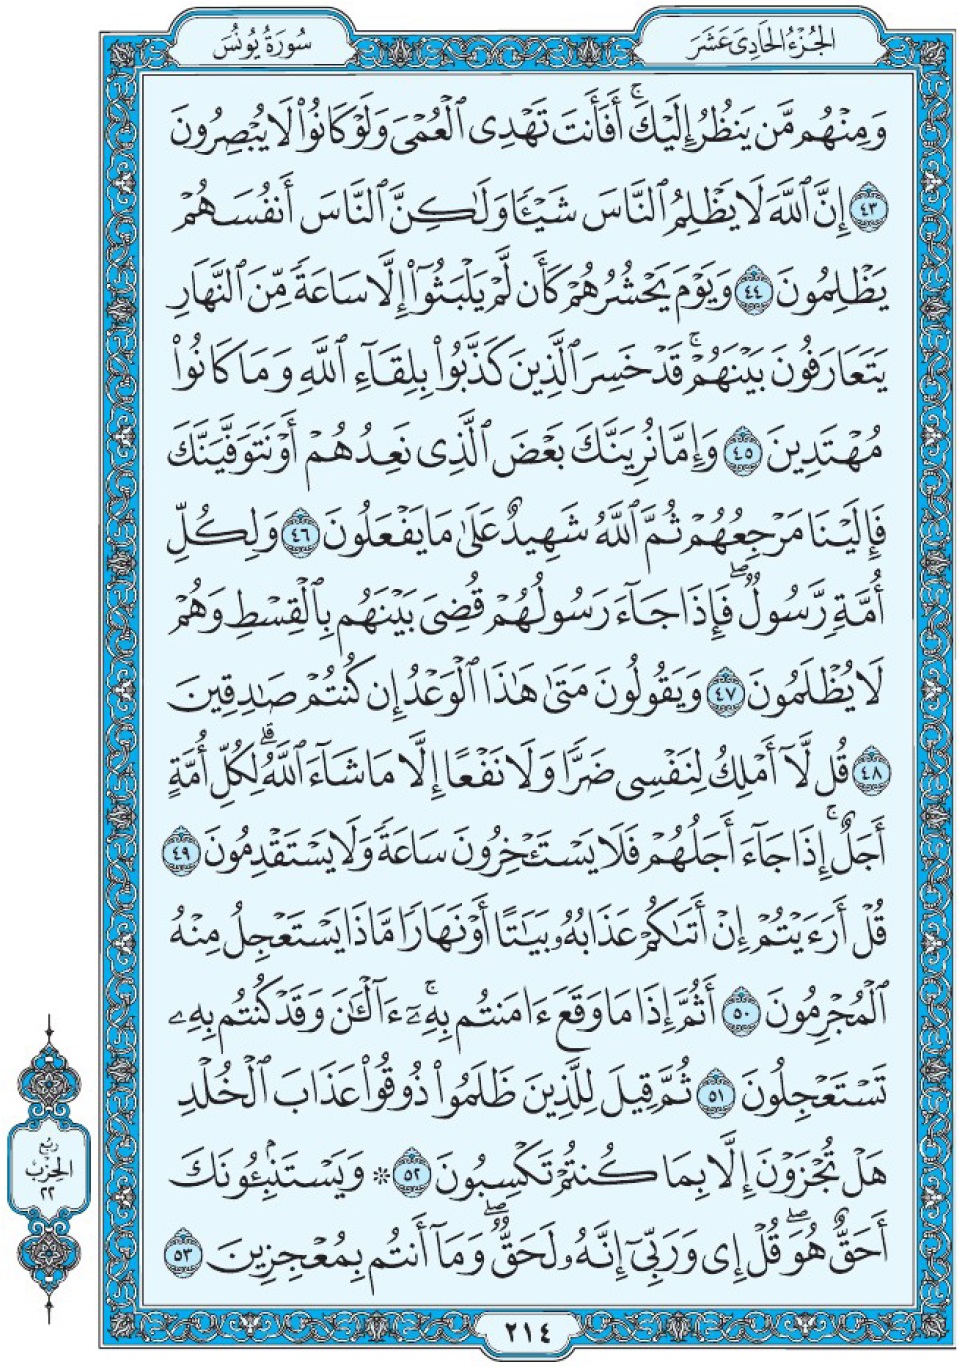 الجُزْءُ الحَادِى عَشَرَ
سُورَةُ يُونُسَ
وَمِنْهُم مَّن يَنظُرُ إِلَيْكَۚ أَفَأَنتَ تَهْدِى ٱلْعُمْىَ وَلَوْ كَانُوا۟ لَا يُبْصِرُونَ
٤٣ إِنَّ ٱللَّهَ لَا يَظْلِمُ ٱلنَّاسَ شَيْـًٔا وَلَـٰكِنَّ ٱلنَّاسَ أَنفُسَهُمْ
يَظْلِمُونَ ٤٤ وَيَوْمَ يَحْشُرُهُمْ كَأَن لَّمْ يَلْبَثُوٓا۟ إِلَّا سَاعَةً مِّنَ ٱلنَّهَارِ
يَتَعَارَفُونَ بَيْنَهُمْۚ قَدْ خَسِرَ ٱلَّذِينَ كَذَّبُوا۟ بِلِقَآءِ ٱللَّهِ وَمَا كَانُوا۟
مُهْتَدِينَ ٤٥ وَإِمَّا نُرِيَنَّكَ بَعْضَ ٱلَّذِى نَعِدُهُمْ أَوْ نَتَوَفَّيَنَّكَ
فَإِلَيْنَا مَرْجِعُهُمْ ثُمَّ ٱللَّهُ شَهِيدٌ عَلَىٰ مَا يَفْعَلُونَ ٤٦ وَلِكُلِّ
أُمَّةٍ رَّسُولٌۖ فَإِذَا جَآءَ رَسُولُهُمْ قُضِىَ بَيْنَهُم بِٱلْقِسْطِ وَهُمْ
لَا يُظْلَمُونَ ٤٧ وَيَقُولُونَ مَتَىٰ هَـٰذَا ٱلْوَعْدُ إِن كُنتُمْ صَـٰدِقِينَ
٤٨ قُل لَّآ أَمْلِكُ لِنَفْسِى ضَرًّا وَلَا نَفْعًا إِلَّا مَا شَآءَ ٱللَّهُۗ لِكُلِّ أُمَّةٍ
أَجَلٌۚ إِذَا جَآءَ أَجَلُهُمْ فَلَا يَسْتَـْٔخِرُونَ سَاعَةً وَلَا يَسْتَقْدِمُونَ ٤٩
قُلْ أَرَءَيْتُمْ إِنْ أَتَىٰكُمْ عَذَابُهُۥ بَيَـٰتًا أَوْ نَهَارًا مَّاذَا يَسْتَعْجِلُ مِنْهُ
ٱلْمُجْرِمُونَ ٥٠ أَثُمَّ إِذَا مَا وَقَعَ ءَامَنتُم بِهِۦٓۚ ءَآلْـَٔـٰنَ وَقَدْ كُنتُم بِهِۦ
تَسْتَعْجِلُونَ ٥١ ثُمَّ قِيلَ لِلَّذِينَ ظَلَمُوا۟ ذُوقُوا۟ عَذَابَ ٱلْخُلْدِ
هَلْ تُجْزَوْنَ إِلَّا بِمَا كُنتُمْ تَكْسِبُونَ ٥٢ * وَيَسْتَنۢبِـُٔونَكَ
أَحَقٌّ هُوَۖ قُلْ إِى وَرَبِّىٓ إِنَّهُۥ لَحَقٌّۖ وَمَآ أَنتُم بِمُعْجِزِينَ ٥٣
ربع
الحزب
٢٢
٢١٤